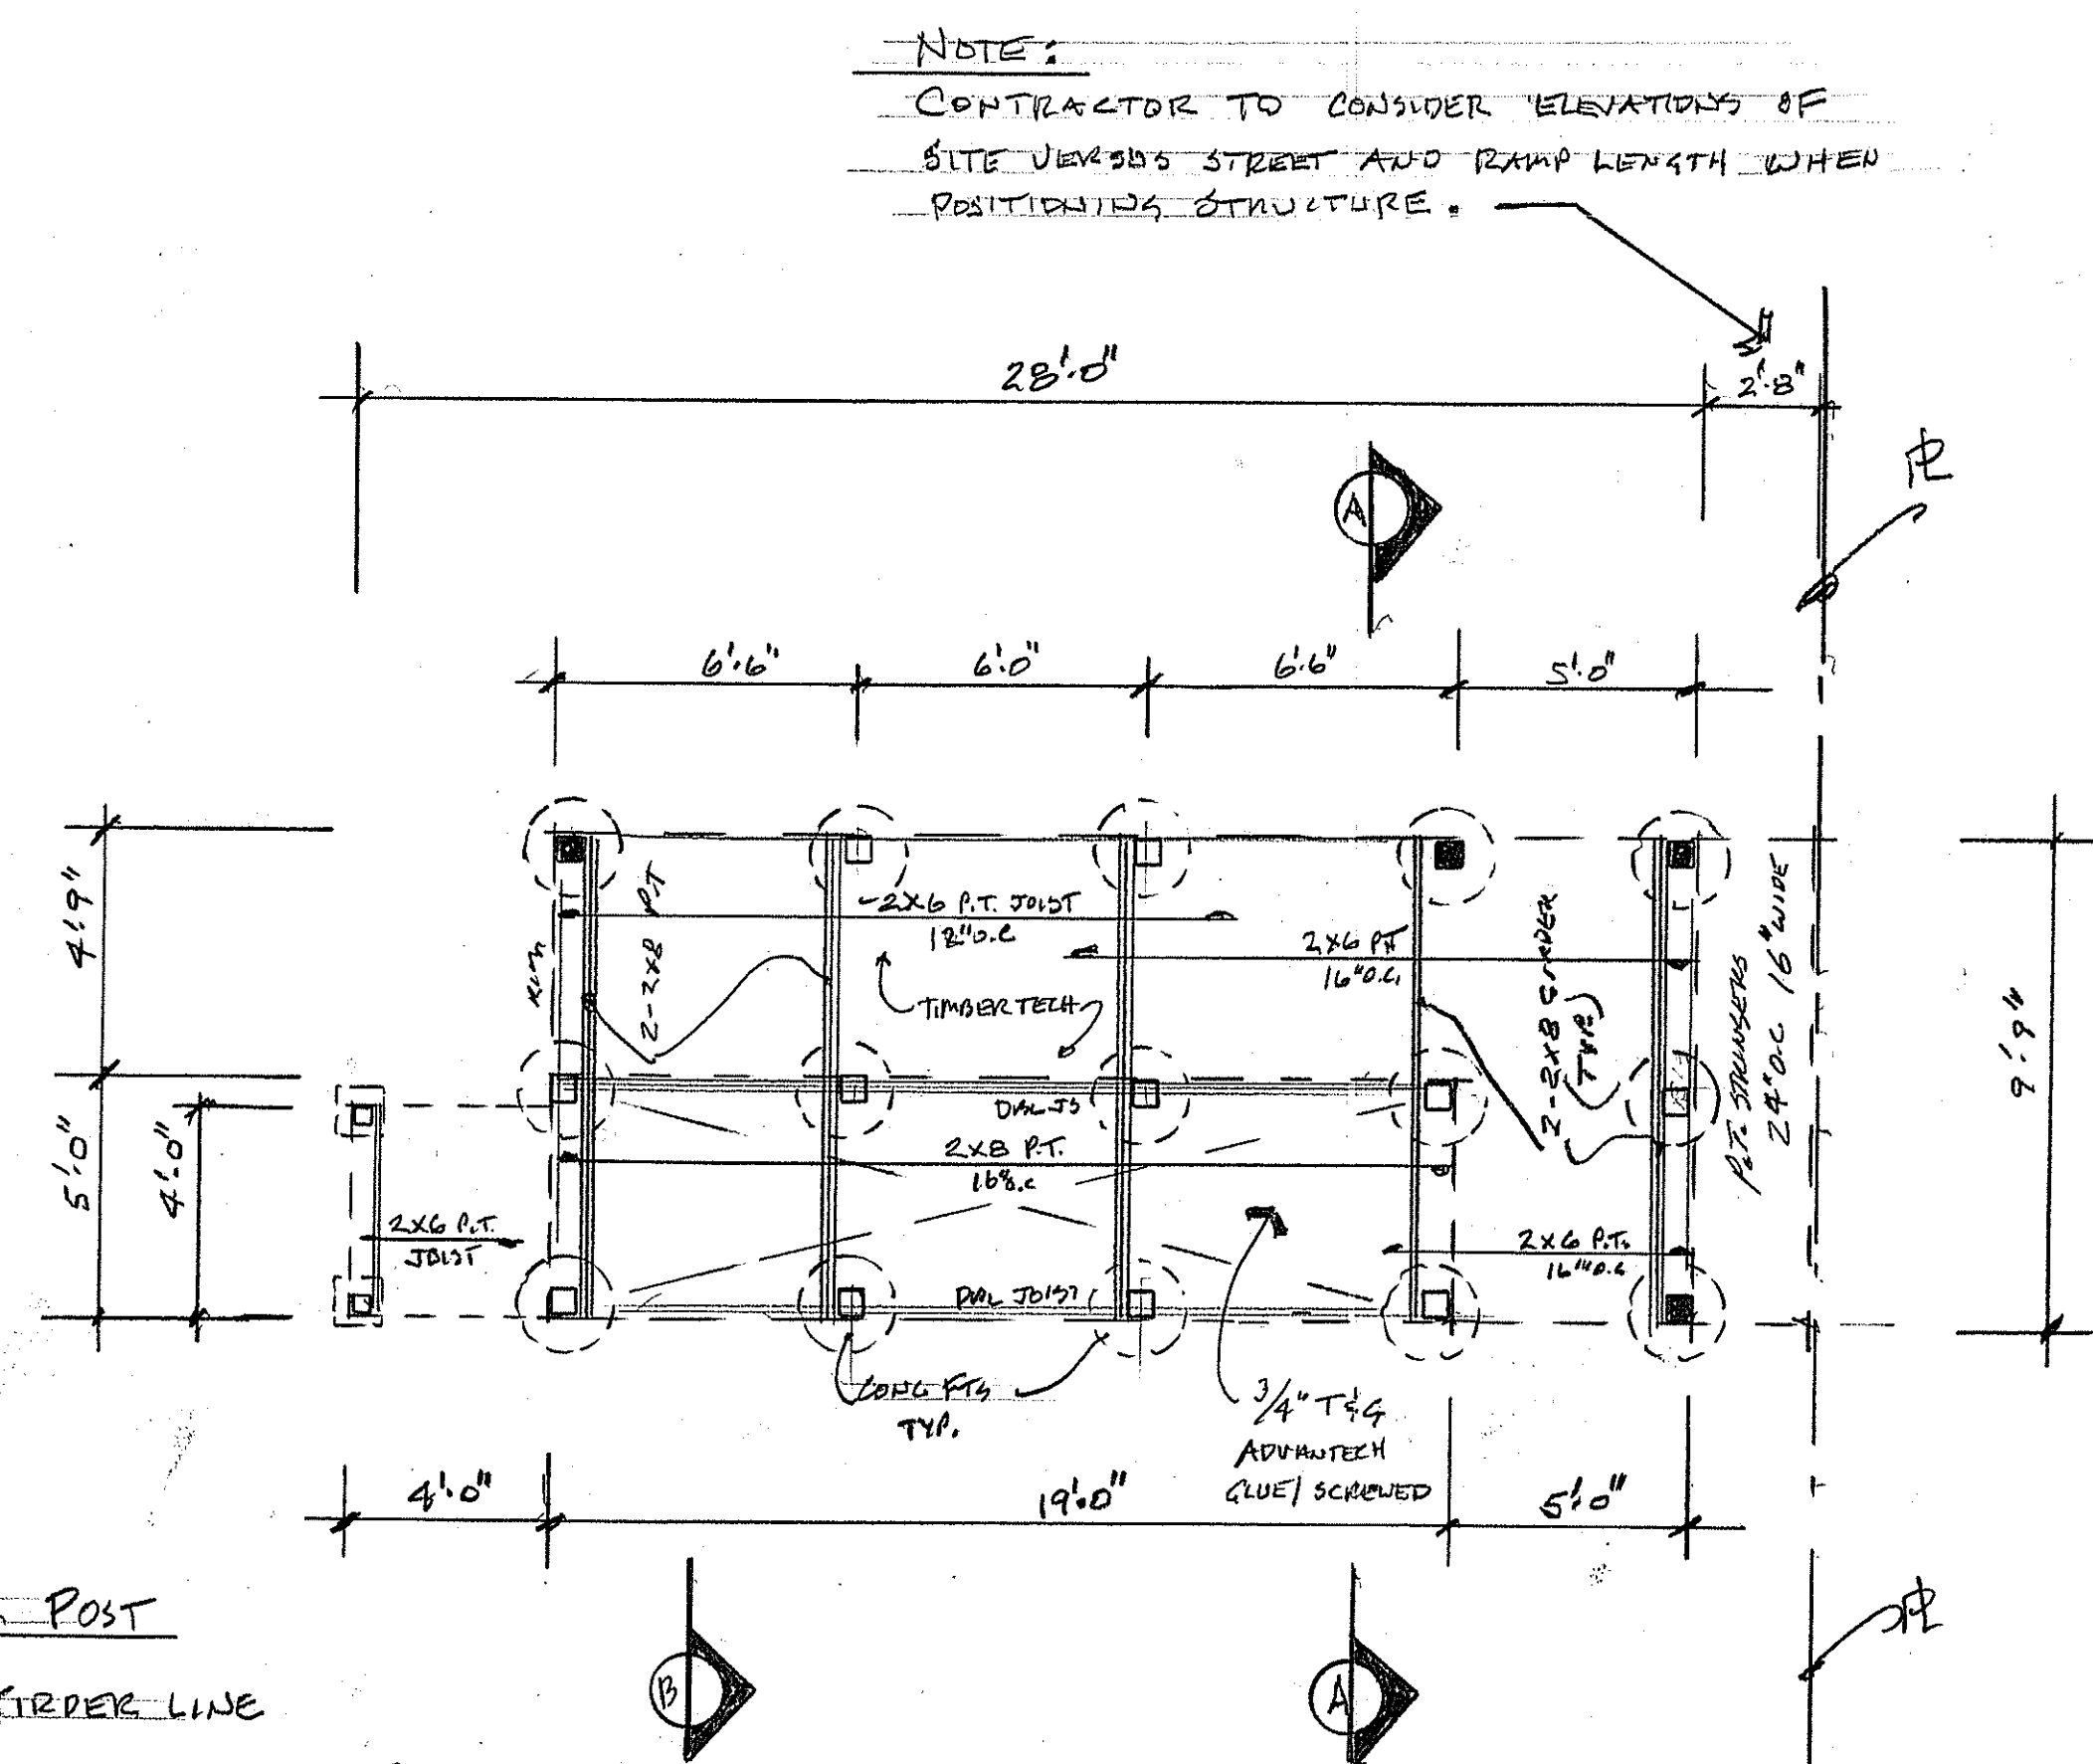 NOTE:
CONTRACTOR TO CONSIDER ELEVATIONS OF
SITE VERSUS STREET AND RAMP LENGTH WHEN
POSITIONING STRUCTURE.
28'-0"
2'-8"
A
PL
6'-6"
6'-0"
6'-6"
5'-0"
4'-9"
5'-0"
4'-0"
9'-9"
RIM
2-2x8 P.T
2X6 P.T. JOIST
12" O.C
2x6 PT
16" O.C.
TIMBERTECH
2-2x8 GIRDER
(TYP.)
P.T. STRINGERS
24" O.C 16" WIDE
DBL JS
2x8 P.T.
16" O.C
2x6 P.T.
JOIST
2x6 P.T.
16" O.C
DBL JOIST
CONC FTG
TYP.
3/4" T&G
ADVANTECH
GLUE/SCREWED
4'-0"
19'-0"
5'-0"
POST
GIRDER LINE
B
A
PL